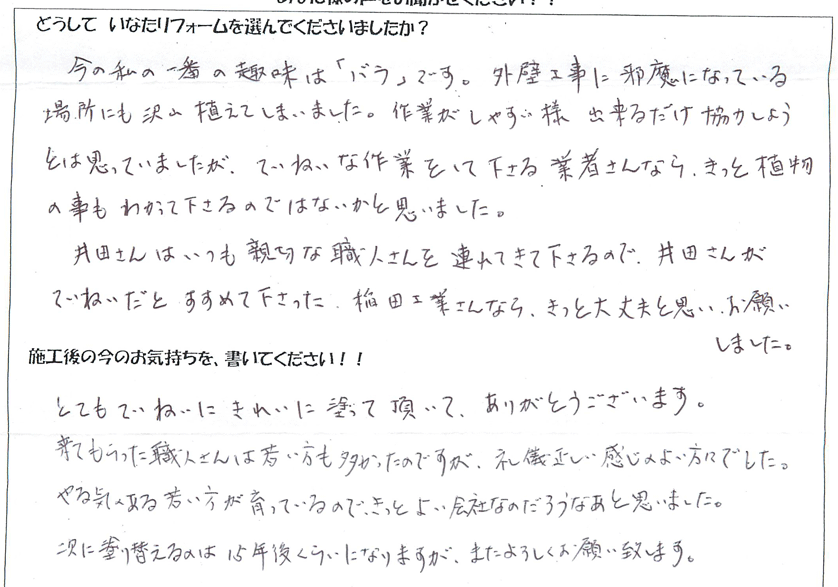 どうして いなたリフォームを選んでくださいましたか？
今の私の一番の趣味は「バラ」です。外壁工事に邪魔になっている
場所にも沢山植えてしまいました。作業がしやすい様 出来るだけ協力しよう
とは思っていましたが、ていねいな作業をして下さる業者さんなら、きっと植物
の事もわかって下さるのではないかと思いました。
井田さんはいつも親切な職人さんを連れてきて下さるので、井田さんが
ていねいだとすすめて下さった、稲田工業さんなら、きっと大丈夫と思い、お願い
しました。
施工後の今のお気持ちを、書いてください！！
とてもていねいにきれいに塗って頂いて、ありがとうございます。
来てもらった職人さんは若い方も多かったのですが、礼儀正しい感じのよい方々でした。
やる気のある若い方が育っているので、きっとよい会社なのだろうなあと思いました。
次に塗り替えるのは15年後くらいになりますが、またよろしくお願い致します。